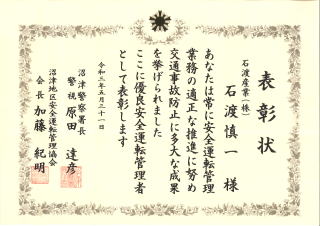 表彰状
石渡産業(株)
石渡慎一 様
あなたは常に安全運転管理
業務の適正な推進に努め
交通事故防止に多大な成果
を挙げられました
ここに優良安全運転管理者
として表彰します
令和三年五月三十一日
沼津警察署長
警視 原田 達彦
沼津地区安全運転管理協会
会長 加藤 紀明